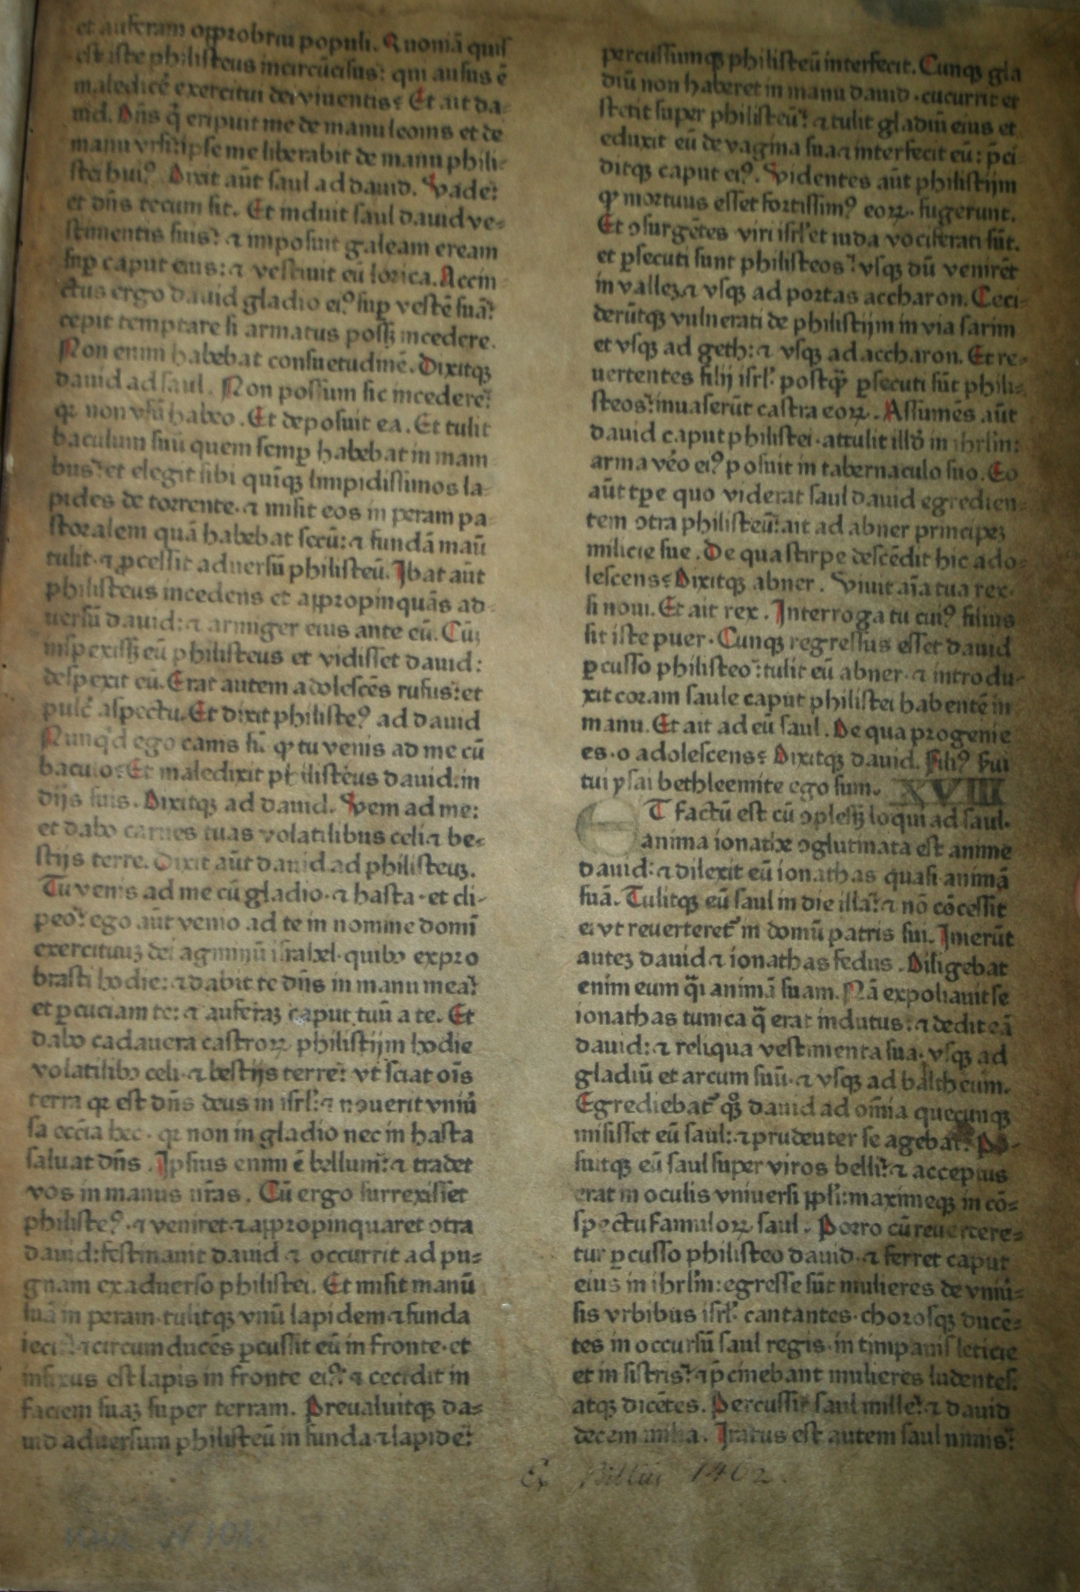 et auferam opprobriū populi. Quoniā quis
est iste philisteus incircūcisus: qui ausus ē
maledicē exercitui dei viuentis? Et ait da-
uid. Dn̄s q̄ eripuit me de manu leonis et de
manu vrsi: ipse me liberabit de manu phili-
stei huiꝰ. Dixit aūt saul ad dauid. Vade:
et dn̄s tecum sit. Et induit saul dauid ve-
stimentis suis: ⁊ imposuit galeam eream
sup̄ caput eius: ⁊ vestiuit eū lorica. Accin
ctus ergo dauid gladio eiꝰ sup̄ vestē suā:
cepit temptare si armatus possꝫ incedere.
Non enim habebat consuetudinē. Dixitqꝫ
dauid ad saul. Non possum sic incedere:
qꝛ non vsū habeo. Et deposuit ea. Et tulit
baculum suū quem semꝑ habebat in mani
bus: et elegit sibi quīqꝫ limpidissimos la-
pides de torrente. ⁊ misit eos in peram pa-
storalem quā habebat secū: ⁊ fundā manū
tulit. ⁊ ꝓcessit aduersū philisteū. Ibat aūt
philisteus incedens et appropinquās ad-
uersū dauid: ⁊ armiger eius ante eū. Cūꝫ
inspexissꝫ eū philisteus et vidisset dauid:
despexit eū. Erat autem adolescēs rufus: et
pulcʳ aspectu. Et dixit philisteꝰ ad dauid
Nunq̇d ego canis sū qꝛ tu venis ad me cū
baculo? Et maledixit philisteus dauid: in
dijs suis. Dixitqꝫ ad dauid. Veni ad me:
et dabo carnes tuas volatilibus celi ⁊ be-
stijs terre. Dixit aūt dauid ad philisteuꝫ.
Tu venis ad me cū gladio. ⁊ hasta. et cli-
peo: ego aūt venio ad te in nomine domī
exercituuꝫ dei agminū israhel. quibꝰ expro
brasti hodie: ⁊ dabit te dn̄s in manu mea:
et ꝑcuciam te: ⁊ auferaꝫ caput tuū a te. Et
dabo cadauera castroꝝ philistijm hodie
volatilibꝰ celi. ⁊ bestijs terre: vt sciat oīs
terra qꝛ est dn̄s deus in isrl̄: ⁊ nouerit vniū
sa eccīa hec. qꝛ non in gladio nec in hasta
saluat dn̄s. Ipsius enim ē bellum: ⁊ tradet
vos in manus nr̄as. Cū ergo surrexisset
philisteꝰ. ⁊ veniret ⁊ appropinquaret ↄtra
dauid: festinauit dauid ⁊ occurrit ad pu-
gnam ex aduerso philistei. Et misit manū
suā in peram. tulitqꝫ vnū lapidem ⁊ funda
ieci: ⁊ circumducēs ꝑcussit eū in fronte. et
infixus est lapis in fronte eiꝰ: ⁊ cecidit in
faciem suaꝫ super terram. Preualuitqꝫ da-
uid aduersum philisteū in funda ⁊ lapide:
percussumqꝫ philisteū interfecit. Cunqꝫ gla
diū non haberet in manu dauid. cucurrit et
stetit super philisteū: ⁊ tulit gladiū eius et
eduxit eū de vagina sua ⁊ interfecit eū: p̄ci-
ditqꝫ caput eiꝰ. Videntes aūt philistijm
qꝛ mortuus esset fortissimꝰ eoꝝ. fugerunt.
Et ↄsurgētes viri isrl̄ et iuda vociferati sūt.
et ꝑsecuti sunt philisteos: vsqꝫ dū venirēt
in valleꝫ ⁊ vsqꝫ ad portas accharon. Ceci-
derūtqꝫ vulnerati de philistijm in via sarim
et vsqꝫ ad geth: ⁊ vsqꝫ ad accharon. Et re-
uertentes filij isrl̄. postqꝫ̄ ꝑsecuti sūt phili-
steos: inuaserūt castra eoꝝ. Assumēs aūt
dauid caput philistei. attulit illð in ihrl̄m:
arma vēo eiꝰ posuit in tabernaculo suo. Eo
aūt tꝑe quo viderat saul dauid egredien-
tem ↄtra philisteū: ait ad abner principeꝫ
milicie sue. De qua stirpe descēdit hic ado-
lescens? Dixitqꝫ abner. Viuit aīa tua rex.
si noui. Et ait rex. Interroga tu cuiꝰ filius
sit iste puer. Cunqꝫ regressus esset dauid
ꝑcusso philisteo: tulit eū abner. ⁊ introdu-
xit coram saule caput philistei habentē in
manu. Et ait ad eū saul. De qua progenie
es. o adolescens? Dixitqꝫ dauid. Filiꝰ sui
tui ysai bethleemite ego sum. XVIII
ET factū est cū ↄplessꝫ loqui ad saul.
anima ionathe ↄglutinata est anime
dauid: ⁊ dilexit eū ionathas quasi animā
suā. Tulitqꝫ eū saul in die illa: ⁊ nō cōcessit
ei vt reuerteret̄ in domū patris sui. Inierūt
auteꝫ dauid ⁊ ionathas fedus. Diligebat
enim eum q̄i animā suam. Nā expoliauit se
ionathas tunica q̄ erat indutus: ⁊ dedit eā
dauid: ⁊ reliqua vestimenta sua. vsqꝫ ad
gladiū et arcum suū. ⁊ vsqꝫ ad baltheum.
Egrediebat̄ qꝫ dauid ad omīa quecunqꝫ
misisset eū saul: ⁊ prudenter se agebat. Po-
suitqꝫ eū saul super viros belli: ⁊ acceptus
erat in oculis vniuersi ppl̄i: maximeqꝫ in cō-
spectu famuloꝝ saul. Porro cū reuertere-
tur ꝑcusso philisteo dauid. ⁊ ferret caput
eius in ihrl̄m: egresse sūt mulieres de vniū-
sis vrbibus isrl̄. cantantes. chorosqꝫ ducē-
tes in occursū saul regis. in timpanis leticie
et in sistris: ⁊ p̄cinebant mulieres ludentes.
atqꝫ dicētes. Percussit saul mille: ⁊ dauid
decem milia. Iratus est autem saul nimis:
Ex Biblia 1462.